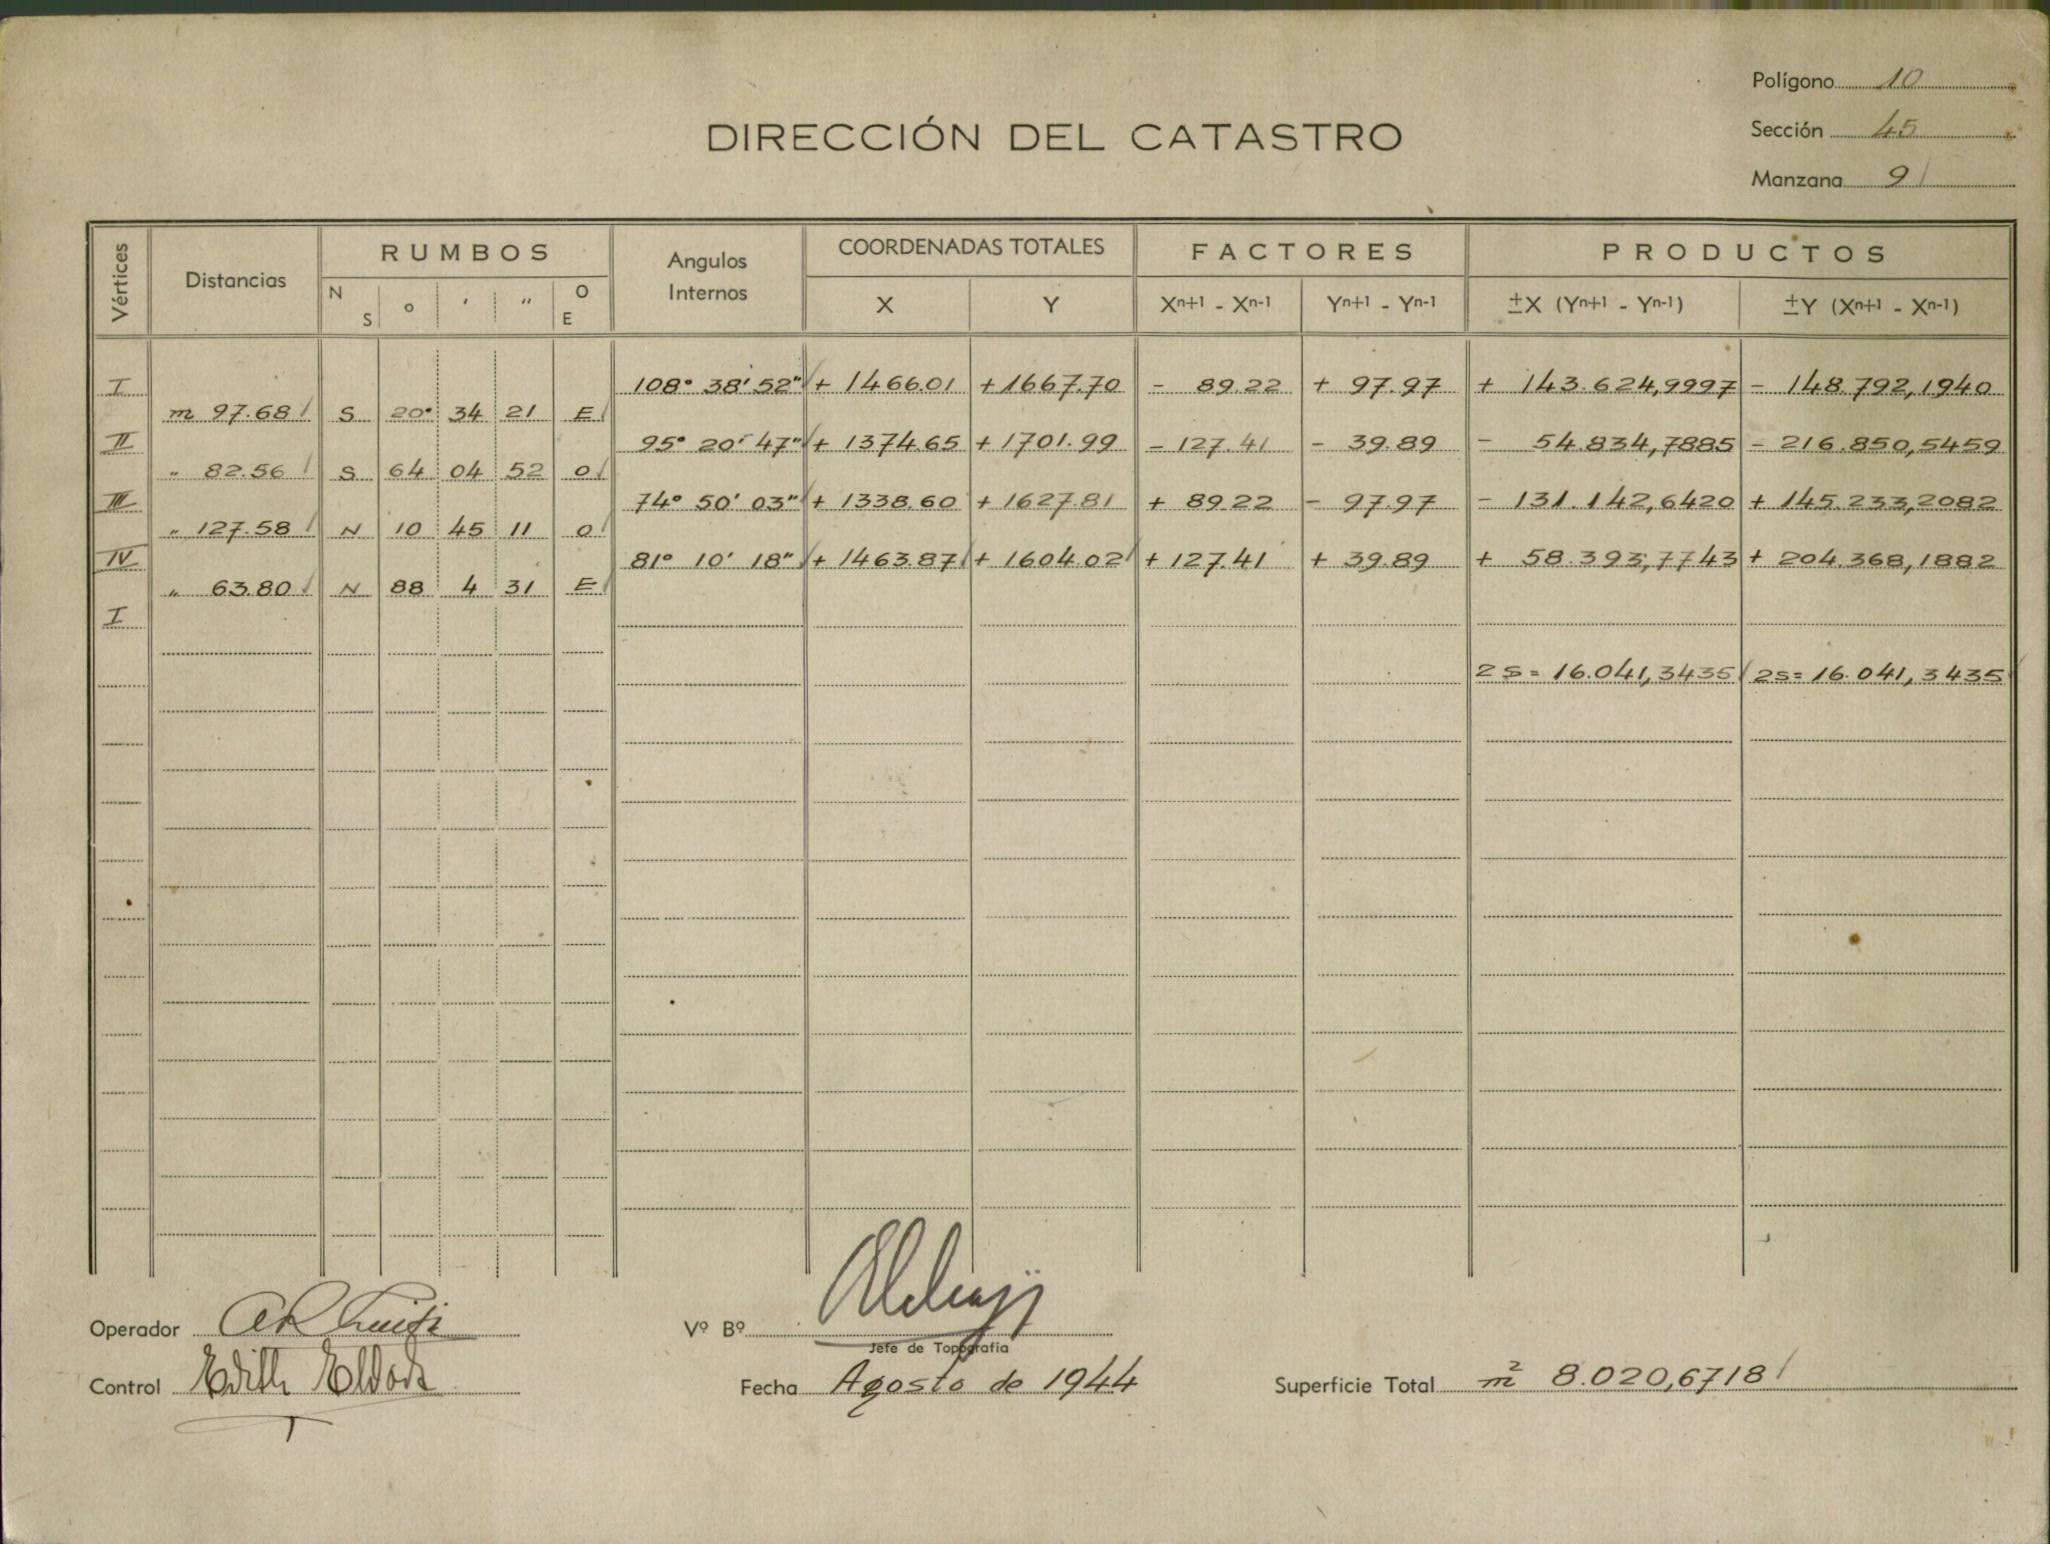 Polígono 10
Sección 45
Manzana 9
DIRECCIÓN DEL CATASTRO
Vértices Distancias RUMBOS Angulos Internos COORDENADAS TOTALES FACTORES PRODUCTOS
N S o ′ ″ O E X Y Xn+1 - Xn-1 Yn+1 - Yn-1 ±X (Yn+1 - Yn-1) ±Y (Xn+1 - Xn-1)
I 108° 38' 52" + 1466.01 + 1667.70 - 89.22 + 97.97 + 143.624,9997 - 148.792,1940
m 97.68 S 20° 34 21 E
II 95° 20' 47" + 1374.65 + 1701.99 - 127.41 - 39.89 - 54.834,7885 - 216.850,5459
" 82.56 S 64 04 52 O
III 74° 50' 03" + 1338.60 + 1627.81 + 89.22 - 97.97 - 131.142,6420 + 145.233,2082
" 127.58 N 10 45 11 O
IV 81° 10' 18" + 1463.87 + 1604.02 + 127.41 + 39.89 + 58.393,7743 + 204.368,1882
" 63.80 N 88 4 31 E
I
2S = 16.041,3435 2S = 16.041,3435
Operador
Vº Bº
Jefe de Topografía
Control Edith
Fecha Agosto de 1944
Superficie Total m² 8.020,6718